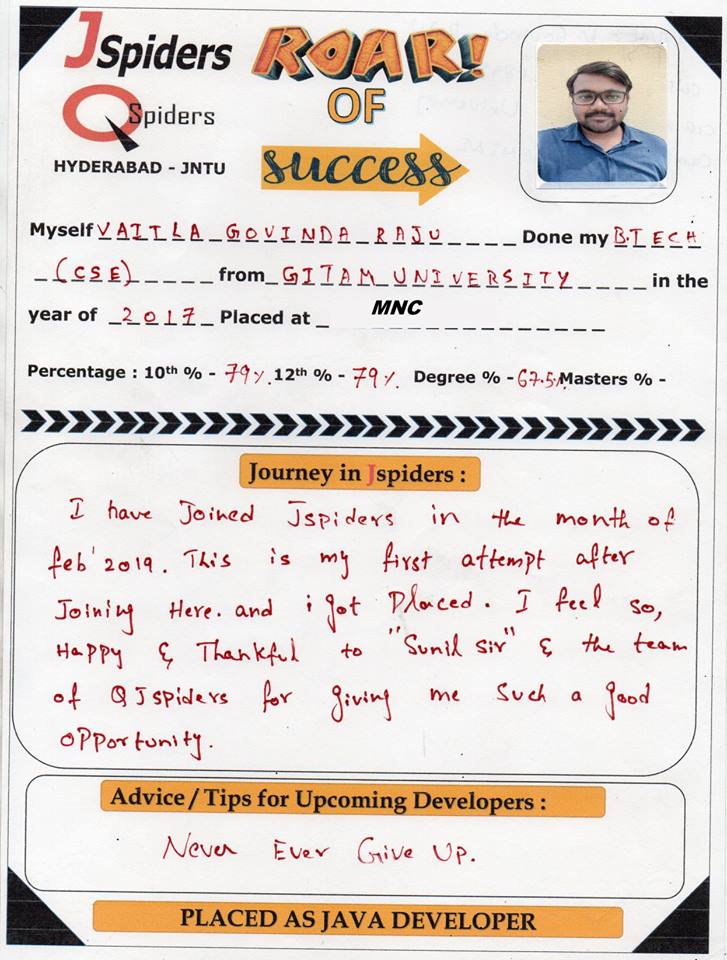 JSpiders
QSpiders
HYDERABAD - JNTU
ROAR!
OF
success
Myself VAITLA GOVINDA RAJU Done my B.TECH
(CSE) from GITAM UNIVERSITY in the
year of 2017 Placed at MNC
Percentage : 10th % - 79% 12th % - 79% Degree % - 67.5% Masters % -
Journey in Jspiders :
I have Joined Jspiders in the month of
feb' 2019. This is my first attempt after
Joining Here. and i got Placed. I feel so,
Happy & Thankful to "Sunil sir" & the team
of QJspiders for giving me such a good
opportunity.
Advice / Tips for Upcoming Developers :
Never Ever Give Up.
PLACED AS JAVA DEVELOPER